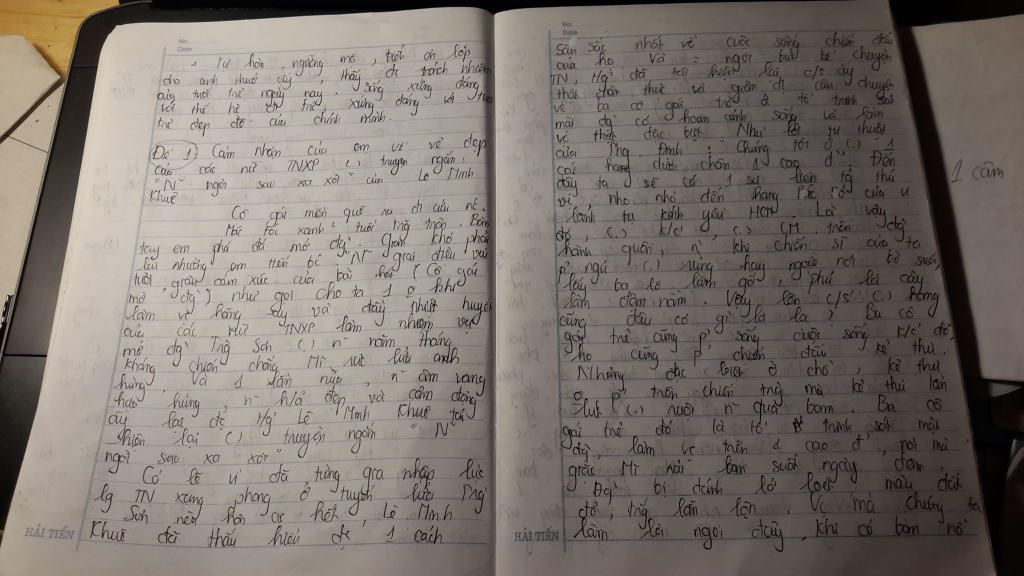 No.
Date
- Tự hào, ngưỡng mộ, biết ơn lớp
cha anh thuở ấy, thấy đc trách nhiệm
của tuổi trẻ ngày nay sống xứng đáng
với thế hệ đi trc, xứng đáng với tuổi
trẻ đẹp đẽ của chính mình.
Đề 1 Cảm nhận của em về vẻ đẹp
của các nữ TNXP (.) truyện ngắn:
"N~ ngôi sao xa xôi" của Lê Minh
Khuê
Cô gái miền quê ra đi cứu nc
Mái tóc xanh tuổi trăng tròn. Bàn
tay em phá đá mở đg. Gian khó phải
lùi nhường em tiến bc. N~ giai điệu vui
tươi giàu cảm xúc của bài hát (Cô gái
mở đg) như gợi cho ta 1 o khí
làm việc hăng say và đầy nhiệt huyết
của các nữ TNXP làm nhiệm vụ
mở đg Trg Sơn (.) n~ năm tháng
kháng chiến chống Mĩ cứu nc anh
hùng. Và 1 lần nữa, n~ âm vang
hào hùng, n~ h/ả đẹp và cảm động
ấy lại đc Lê Minh Khuê tái
hiện lại (.) truyện ngắn "N~
ngôi sao xa xôi"
Có lẽ vì đã từng gia nhập lực
lg TN xung phong ở tuyến lửa Trg
Sơn nên hơn ai hết, Lê Minh
Khuê đã thấu hiểu đc 1 cách
HẢI TIẾN
No.
Date
sâu sắc nhất về cuộc sống chiến đấu
của họ và ngòi bút kể chuyện
đã tái hiện lại c/s ấy
thật chân thực và giản dị câu chuyện
về ba cô gái trẻ ở tổ trinh sát
mặt đg có hoàn cảnh sống và làm
vc thật đặc biệt. Như lời tự thuật
của Phg Định: "Chúng tôi ở (.) 1
cái hang dưới chân 1 cao đ'". Đến
đây ta sẽ có 1 sự liên tg thú
vị, nho nhỏ đến hang Pác Bó của vị
lãnh tụ kính yêu HCM. Là vậy
đó, (.) k/c', (.) CM. trên đg
hành quân, n~ khi chiến sĩ của ta
p' ngủ (.) rừng hay ngoài nơi bờ suối,
lấy ba lô làm gối, phủ lá cây
làm đệm nằm. Vậy nên c/s (.) hang
cũng đâu có gì là lạ? Ba cô
gái trẻ cũng p' sống cuộc sống k/c' đó,
họ cũng p' chiến đấu kẻ thù.
Nhưng đặc biệt ở chỗ, kẻ thù
o p' trên chiến trg mà kẻ thù lẩn
khuất (.) n~ quả bom. Ba cô
gái trẻ đó là tổ trinh sát mặt
đg, làm vc trên 1 cao đ', nơi mà
giặc Mĩ ném bom suốt ngày đêm.
Đg bị đánh lở loét màu đất
đỏ, trg lẫn lộn. Vc mà chúng ta
làm là ngồi đấy, khi có bom nổ
HẢI TIẾN
1 cảm